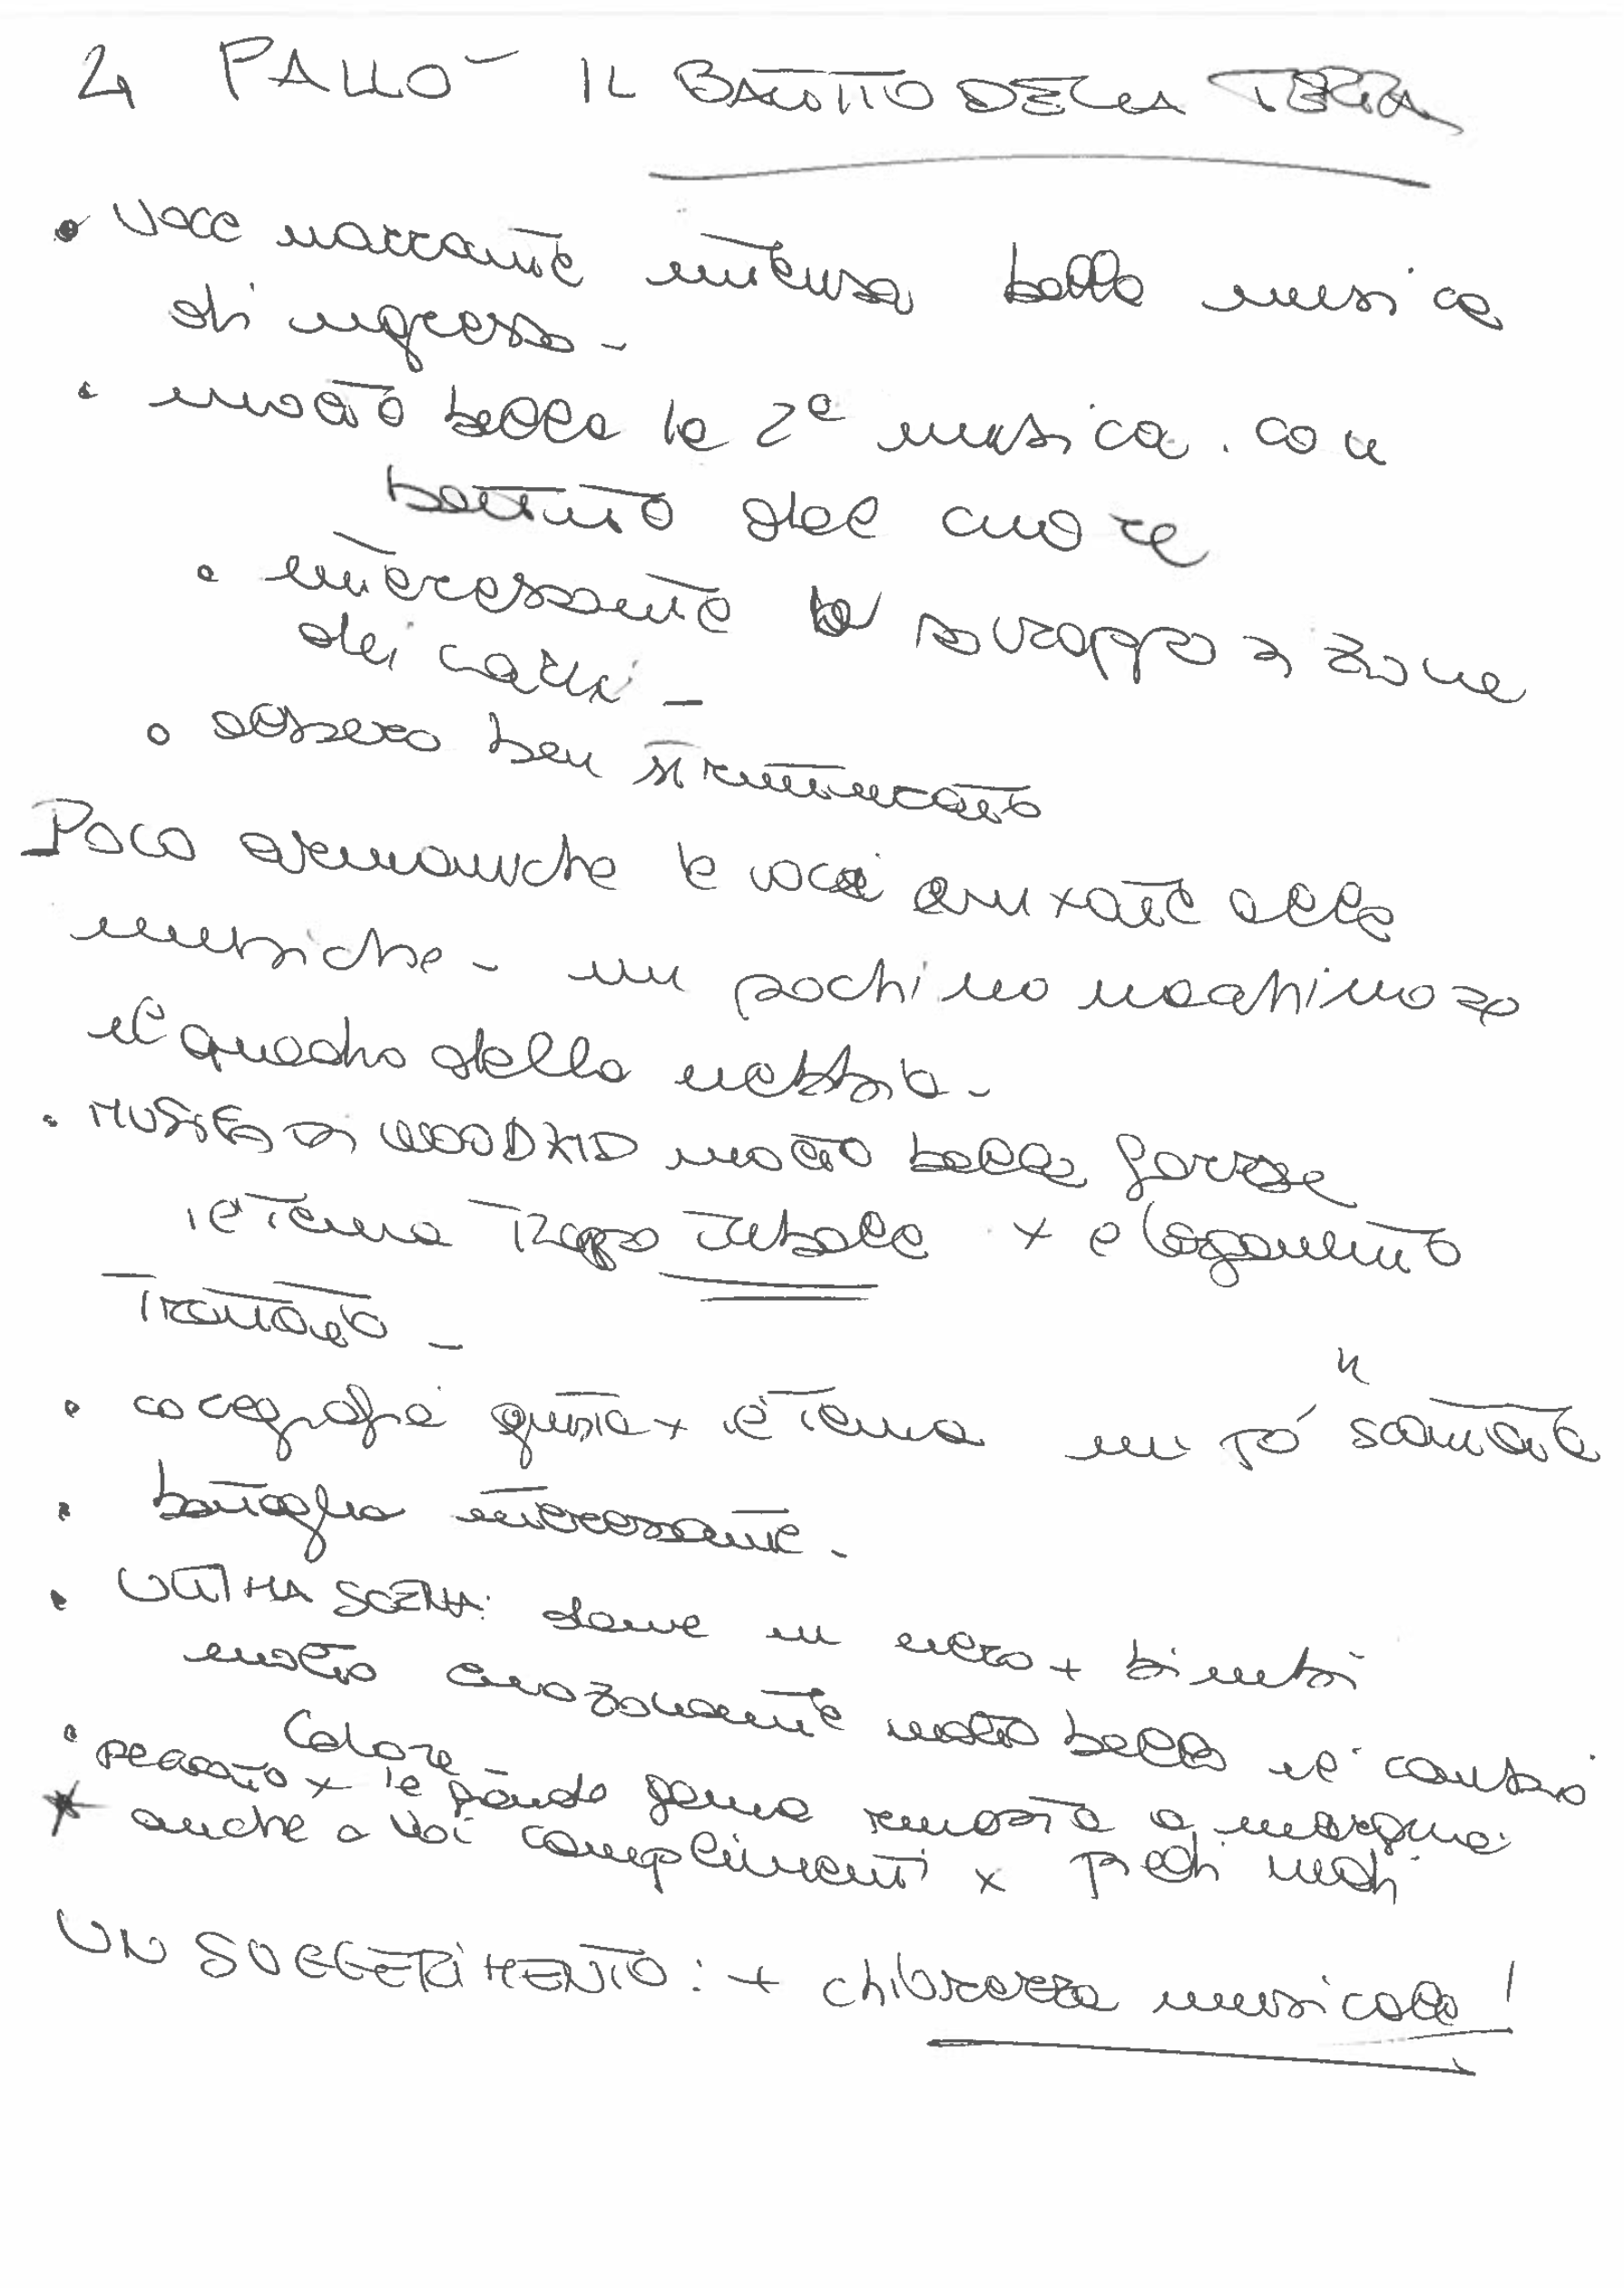 4 PALIO - IL BATTITO DELLA TERRA
• Voce narrante intensa bella musica
di ingresso -
• molto bella la 2ª musica. con
battito del cuore
• interessante la sovrapposizione
dei carri -
• albero ben strutturato
Poco armoniche le voci mixate alle
musiche - un pochino macchinoso
il quadro della nebbia -
• MUSICA DI WOODKID molto bella forse
tema troppo tribale x
trattato -
• coreografia giusta x il tema un pò scontata
• battaglia interessante -
• ULTIMA SCENA: dame in nero + bimbi
molto emozionante molto bello il cambio
colore
• peccato x la grande gemma rimasta a margine
* anche a voi complimenti x piedi nudi
UN SUGGERIMENTO: + chiarezza musicale!